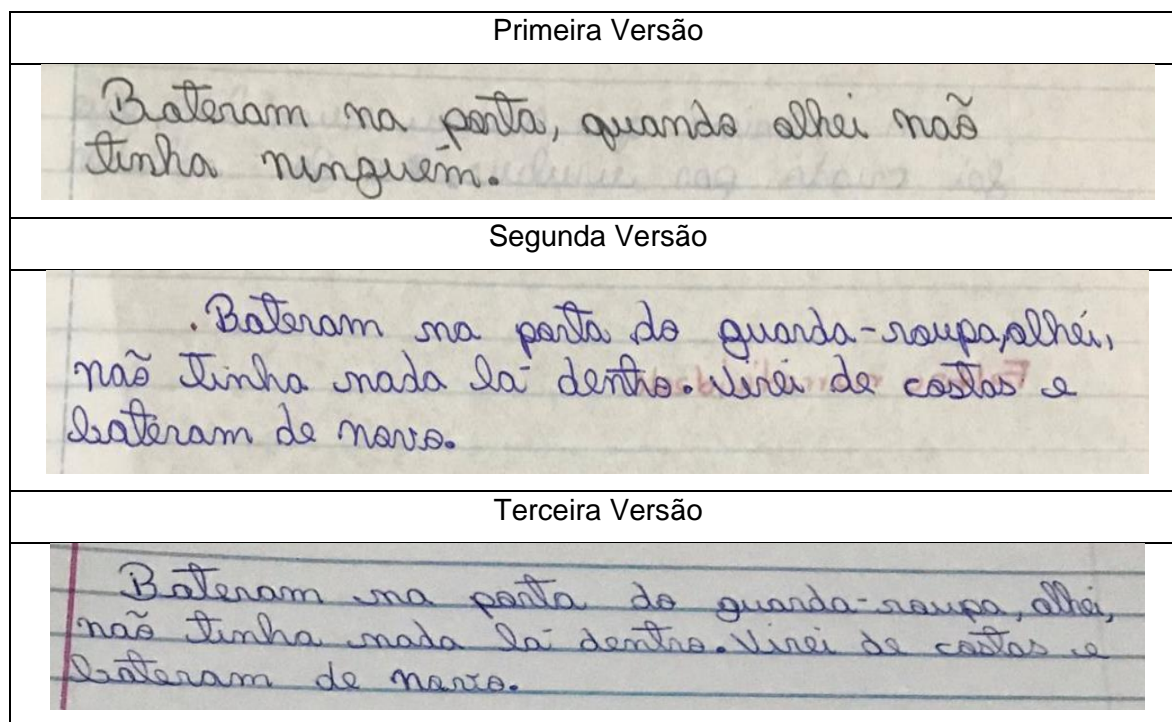 Primeira Versão
Bateram na porta, quando olhei não
tinha ninguém.
Segunda Versão
. Bateram na porta do guarda-roupa, olhei,
não tinha nada lá dentro. Virei de costas e
bateram de novo.
Terceira Versão
Bateram na porta do guarda-roupa, olhei,
não tinha nada lá dentro. Virei de costas e
bateram de novo.